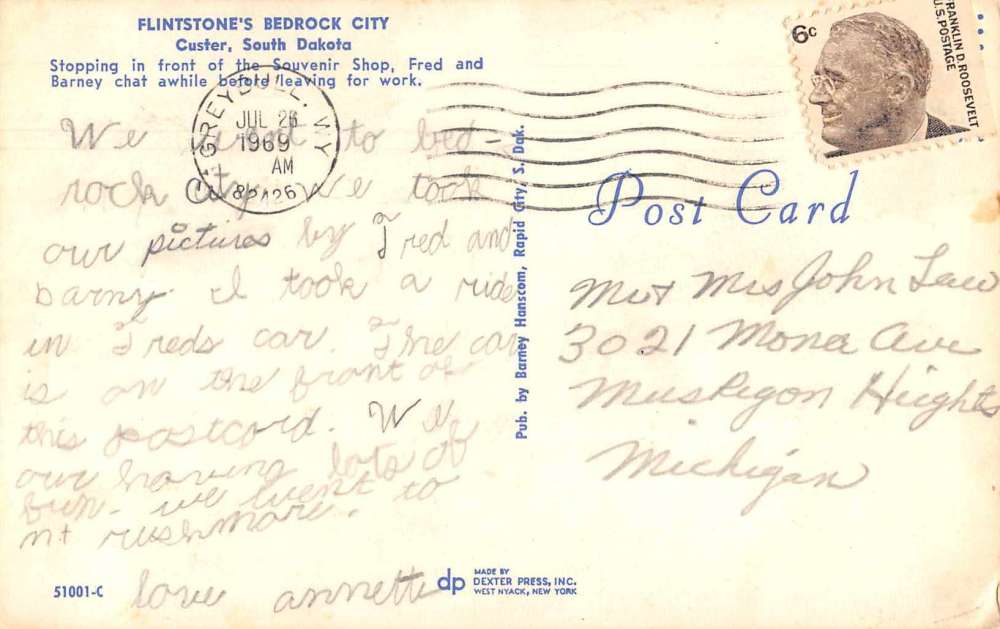 FLINTSTONE'S BEDROCK CITY
Custer, South Dakota
Stopping in front of the Souvenir Shop, Fred and
Barney chat awhile before leaving for work.
GREYBULL, WY
JUL 26
1969
AM
82426
6c
FRANKLIN D. ROOSEVELT
U.S. POSTAGE
Post Card
We went to bed-
rock City. We took
our pictures by Fred and
barny. I took a ride
in Freds car. The car
is on the front of
this postcard. We
our having lots of
fun. we went to
mt rushmore.
love annette
Pub. by Barney Hanscom, Rapid City, S. Dak.
Mr + Mrs John Law
3021 Mona Ave
Muskegon Heights
Michigan
51001-C
dp
MADE BY
DEXTER PRESS, INC.
WEST NYACK, NEW YORK